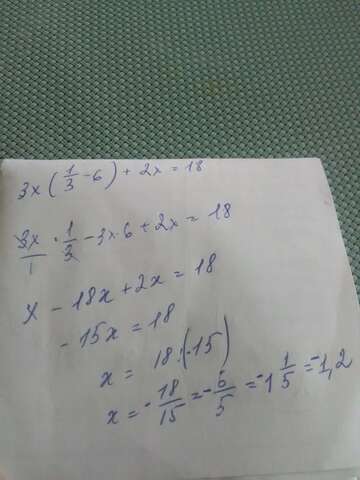 3x(1/3 - 6) + 2x = 18
3x/1 · 1/3 - 3x·6 + 2x = 18
x - 18x + 2x = 18
- 15x = 18
x = 18:(-15)
x = - 18/15 = - 6/5 = -1 1/5 = -1,2